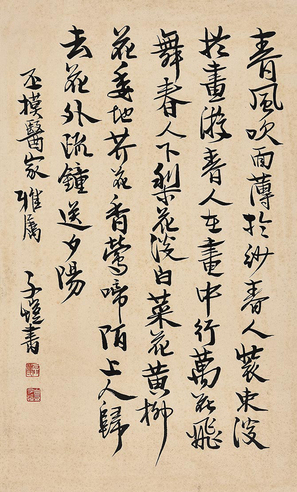 春風吹面薄於紗春人裝束淡
於畫游春人在畫中行萬花飛
舞春人下梨花淡白菜花黃柳
花委地芥花香鶯啼陌上人歸
去花外疏鐘送夕陽
丕模醫家雅屬 子愷書